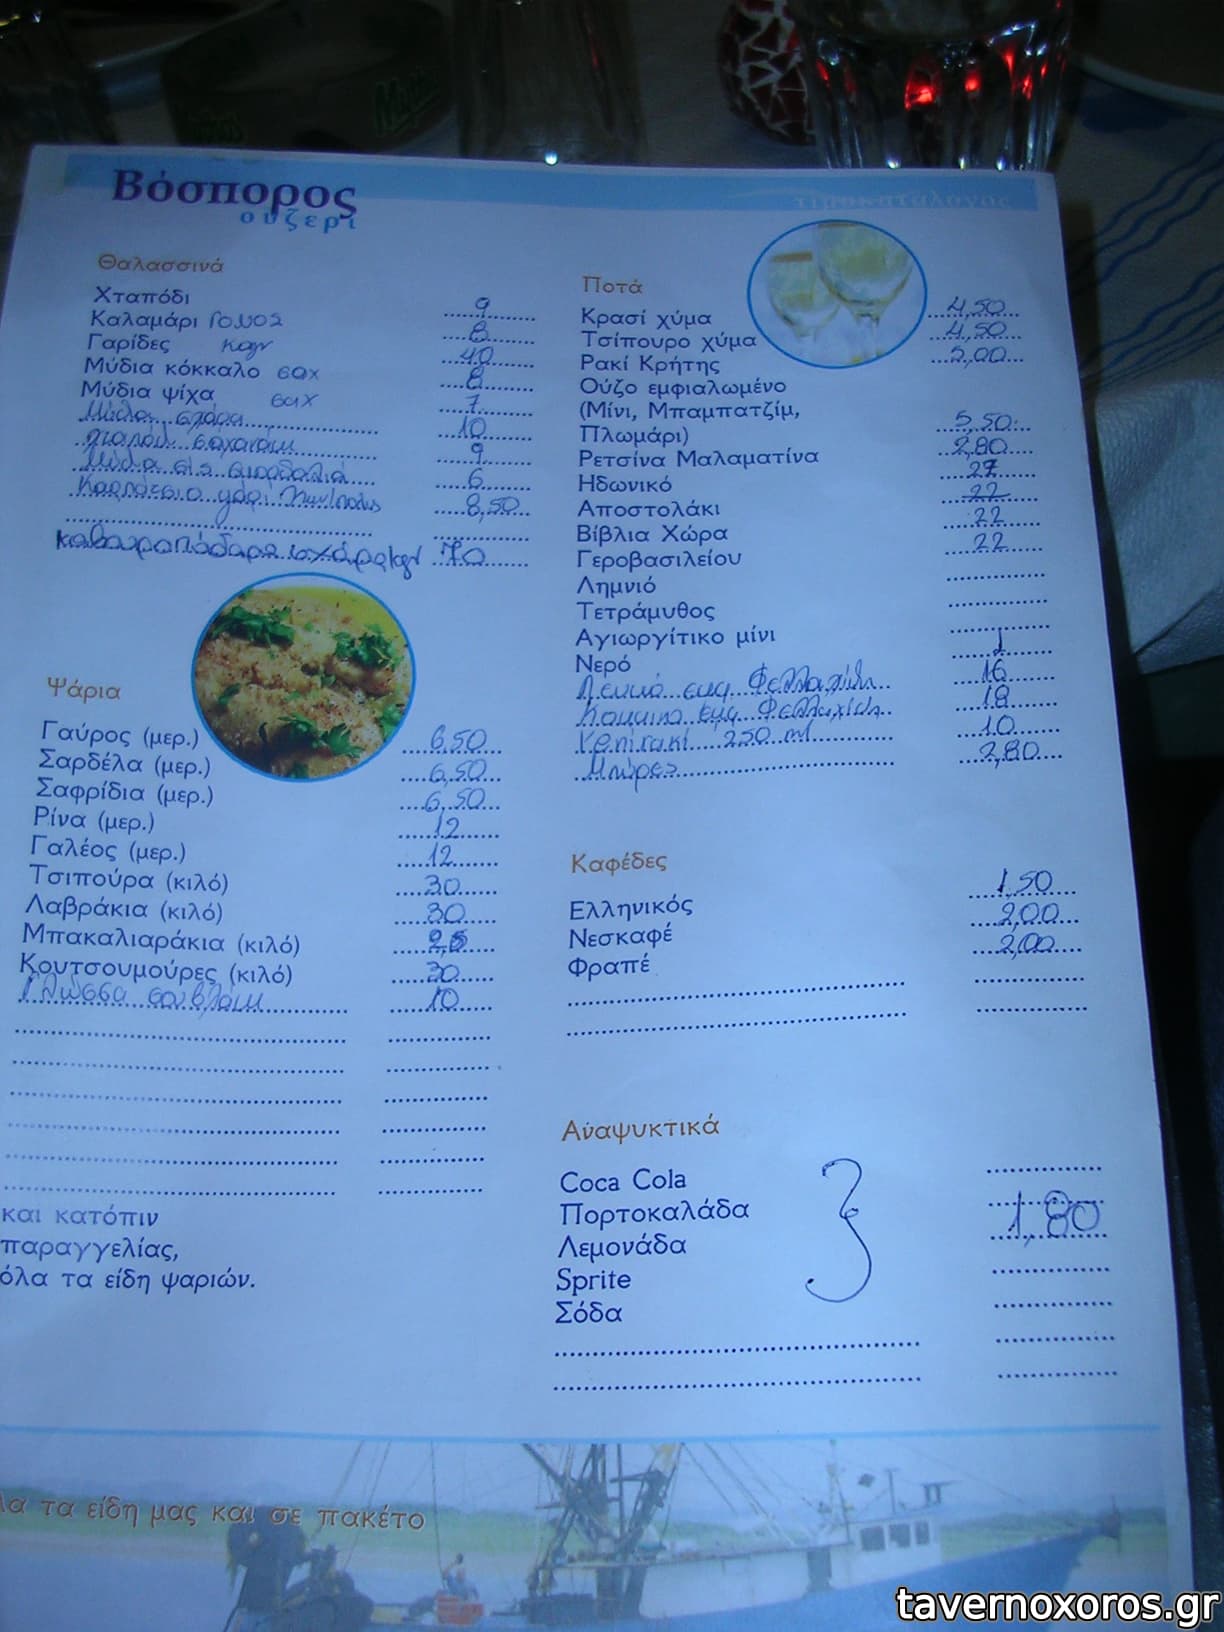 Βόσπορος
ουζερί
τιμοκατάλογος
Θαλασσινά
Χταπόδι 9
Καλαμάρι Γόνος 8
Γαρίδες κgr 40
Μύδια κόκκαλο σαχ 8
Μύδια ψίχα σαχ 7
Μύδια σχάρα 10
σαχανάκι 9
Μύδια 6
8,50
καβουροπόδαρα σχάρα kgr 70
Ψάρια
Γαύρος (μερ.) 6,50
Σαρδέλα (μερ.) 6,50
Σαφρίδια (μερ.) 6,50
Ρίνα (μερ.) 12
Γαλέος (μερ.) 12
Τσιπούρα (κιλό) 30
Λαβράκια (κιλό) 30
Μπακαλιαράκια (κιλό) 25
Κουτσουμούρες (κιλό) 30
Γλώσσα σουβλάκι 10
και κατόπιν
παραγγελίας,
όλα τα είδη ψαριών.
Ποτά
Κρασί χύμα 4,50
Τσίπουρο χύμα 4,50
Ρακί Κρήτης 5,00
Ούζο εμφιαλωμένο
(Μίνι, Μπαμπατζίμ,
Πλωμάρι) 5,50
Ρετσίνα Μαλαματίνα 2,80
Ηδωνικό 27
Αποστολάκι 22
Βίβλια Χώρα 22
Γεροβασιλείου 22
Λημνιό
Τετράμυθος
Αγιωργίτικο μίνι
Νερό 1
Λευκό εμφ Φελλαχίδη 16
Κόκκινο εμφ Φελλαχίδη 18
250 ml 10
Μπύρες 2,80
Καφέδες
Ελληνικός 1,50
Νεσκαφέ 2,00
Φραπέ 2,00
Αναψυκτικά
Coca Cola
Πορτοκαλάδα
Λεμονάδα 1,80
Sprite
Σόδα
λα τα είδη μας και σε πακέτο
tavernoxoros.gr